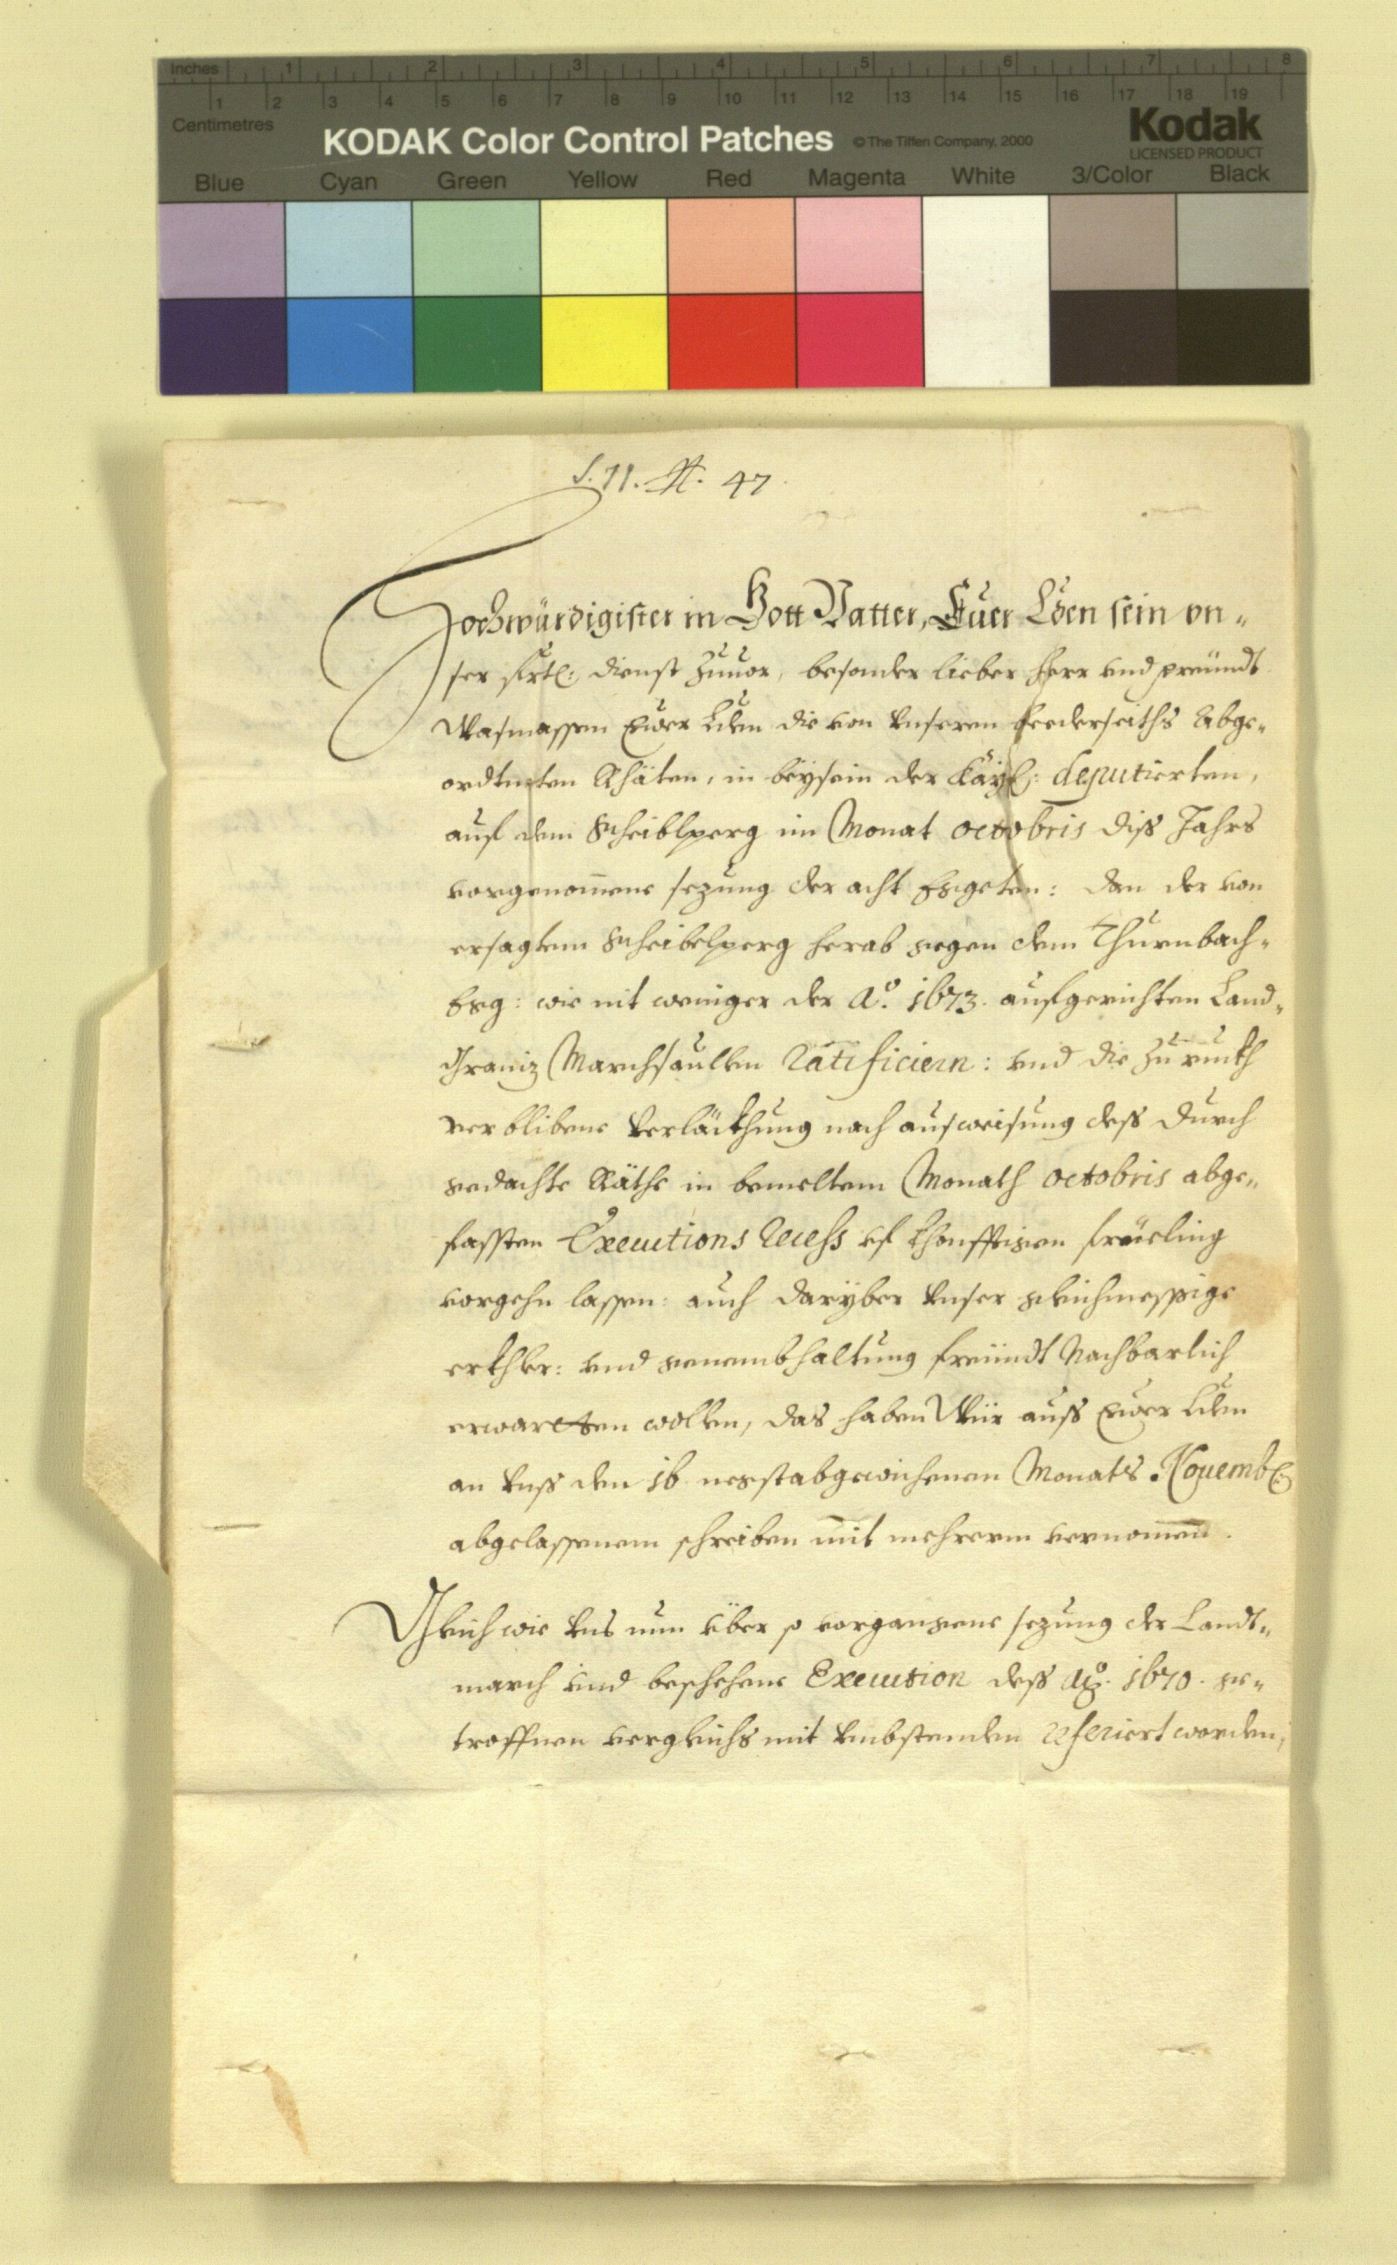 Inches 1 2 3 4 5 6 7 8
1 2 3 4 5 6 7 8 9 10 11 12 13 14 15 16 17 18 19
Centimetres
KODAK Color Control Patches © The Tiffen Company, 2000
Kodak
LICENSED PRODUCT
Blue Cyan Green Yellow Red Magenta White 3/Color Black
47
Hochwürdigister in Gott Vatter, Euer Lden sein vn„
ser dienst zuuor, besonder lieber Herr vnd freündt
Wasmassen Euer Lden die von Vnseren beederseiths Abge„
ordtneten Rhäten, in beÿsein der Kaÿl: deputierten,
auf dem Scheiblperg im Monat octobris diss Jahrs
vorgenomene sezung der acht: dan der von
ersagtem Scheibelperg herab gegen dem Thurnbach„
wie nit weniger der Ao. 1673. aufgerichten Land„
Graniz Marchsaullen Ratificiern: vnd die zu ruckh
verblibene verlackhung nach ausweisung dess durch
gedachte Räthe in bemeltem Monath octobris abge„
fassten Executions Recess vf khonfftigen früeling
vorgehn lassen: auch darÿber Vnser gleichmessige
erkhler: vnd genembhaltung freündt Nachbarlich
erwartten wollen, das haben Wür auss Euer Lden
an Vnss den 16 negstabgewichenen Monats Nouemb:
abgelassenem schreiben mit mehrerm vernomen.
Gleich wie Vns nun über so vorgangene sezung der Landt„
march vnd beschehene Execution dess Ao. 1670. ge„
troffnen vergleichs mit Vmbstenden referiert worden,